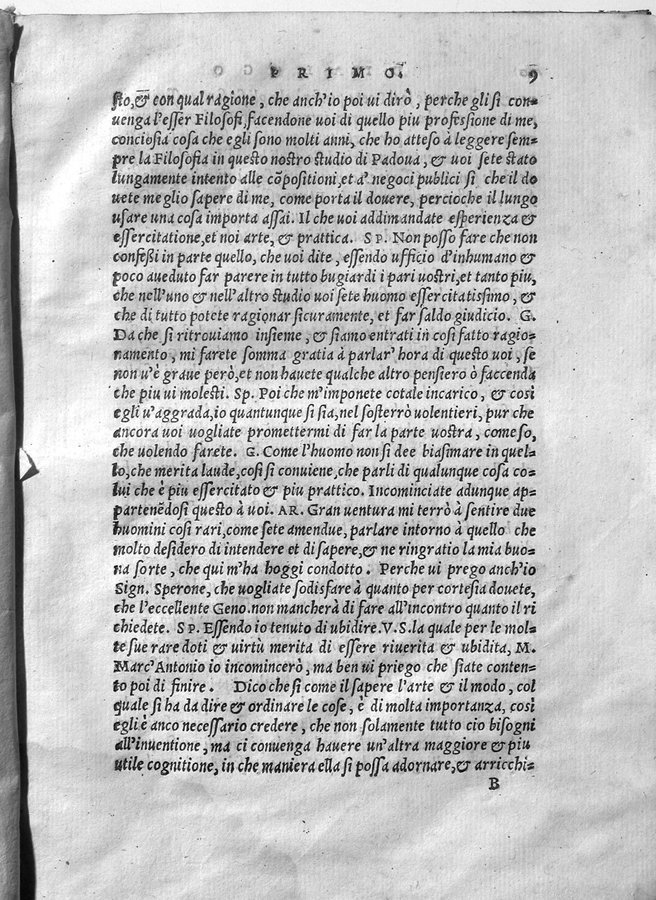 PRIMO. 9
sto, & con qual ragione, che anch'io poi ui dirò, perche gli si con-
uenga l'esser Filosofi, facendone uoi di quello piu professione di me,
conciosia cosa che egli sono molti anni, che ho atteso à leggere sem-
pre la Filosofia in questo nostro studio di Padoua, & uoi sete stato
lungamente intento alle cōpositioni, et a' negoci publici si che il do
uete meglio sapere di me, come porta il douere, percioche il lungo
usare una cosa importa assai. Il che uoi addimandate esperienza &
essercitatione, et noi arte, & prattica. SP. Non posso fare che non
confeßi in parte quello, che uoi dite, essendo ufficio d'inhumano &
poco aueduto far parere in tutto bugiardi i pari uostri, et tanto piu,
che nell'uno & nell'altro studio uoi sete huomo essercitatissimo, &
che di tutto potete ragionar sicuramente, et far saldo giudicio. G.
Da che si ritrouiamo insieme, & siamo entrati in cosi fatto ragio-
namento, mi farete somma gratia à parlar' hora di questo uoi, se
non u'è graue però, et non hauete qualche altro pensiero ò faccenda
che piu ui molesti. Sp. Poi che m'imponete cotale incarico, & cosi
egli u'aggrada, io quantunque si sia, nel sosterrò uolentieri, pur che
ancora uoi uogliate promettermi di far la parte uostra, come so,
che uolendo farete. G. Come l'huomo non si dee biasimare in quel-
lo, che merita laude, cosi si conuiene, che parli di qualunque cosa co-
lui che è piu essercitato & piu prattico. Incominciate adunque ap-
partenēdosi questo à uoi. AR. Gran uentura mi terrò à sentire due
huomini cosi rari, come sete amendue, parlare intorno à quello che
molto desidero di intendere et di sapere, & ne ringratio la mia buo-
na sorte, che qui m'ha hoggi condotto. Perche ui prego anch'io
Sign. Sperone, che uogliate sodisfare à quanto per cortesia douete,
che l'eccellente Geno. non mancherà di fare all'incontro quanto il ri
chiedete. SP. Essendo io tenuto di ubidire. V.S. la quale per le mol-
te sue rare doti & uirtù merita di essere riuerita & ubidita, M.
Marc'Antonio io incomincerò, ma ben ui priego che siate conten-
to poi di finire. Dico che si come il sapere l'arte & il modo, col
quale si ha da dire & ordinare le cose, è di molta importanza, cosi
egli è anco necessario credere, che non solamente tutto cio bisogni
all'inuentione, ma ci conuenga hauere un'altra maggiore & piu
utile cognitione, in che maniera ella si possa adornare, & arricchi-
B